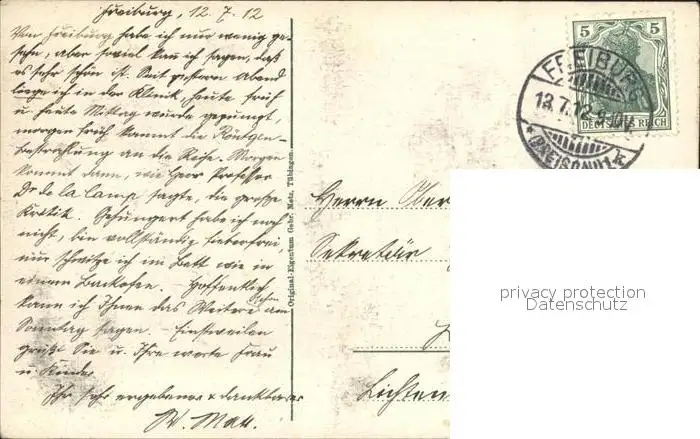 Freiburg, 12. 7. 12
Von Freiburg habe ich nur wenig ge-
sehn, aber soviel kann ich sagen, daß
es sehr schön ist. Seit gestern Abend
liege ich in der Klinik, heute früh
u heute Mittag wurde gepumpt,
morgen früh kommt die Röntgen-
Bestrahlung an die Reihe. Morgen
kommt dann, wie Herr Professor
Dr de la Camp sagte, die große
Kritik. Gehungert habe ich noch
nicht, bin vollständig fieberfrei,
nur schwitze ich im Bett wie in
einem Backofen. - Hoffentlich
kann ich Ihnen das Weitere schon am
Sonntag sagen. - Einstweilen
grüßt Sie u. Ihre werte Frau
u Kinder
Ihr sehr ergebener & dankbarer
W.
Original-Eigentum Gebr. Metz, Tübingen.
5 5
DEUTSCHES REICH
FREIBURG
13.7.12
BREISGAU
Herrn Ober
Sekretär
Lichten
privacy protection
Datenschutz